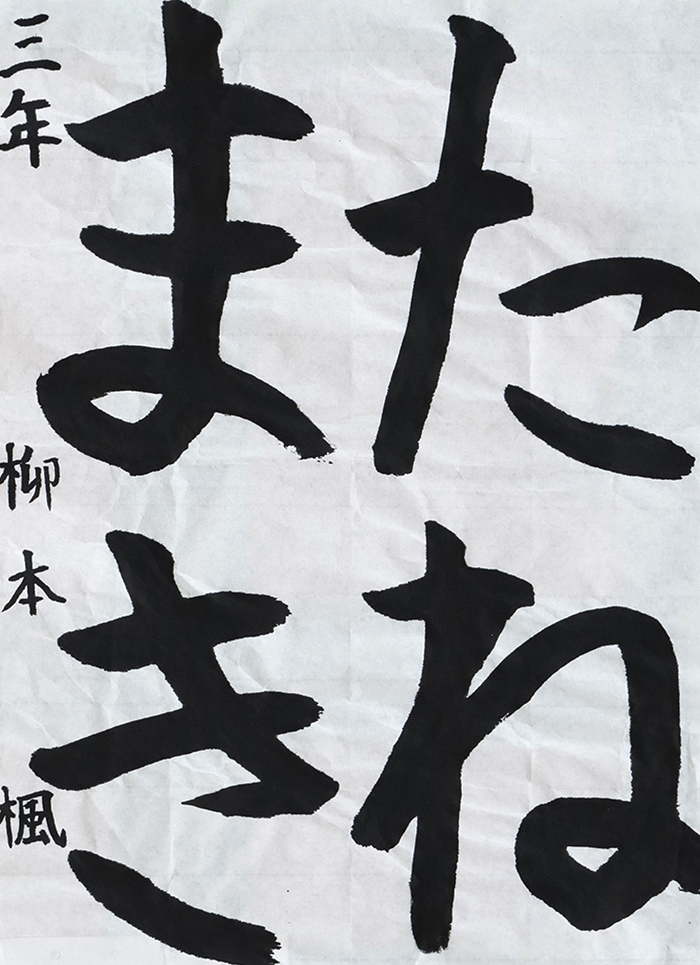 たね
まき
三年 柳本 楓